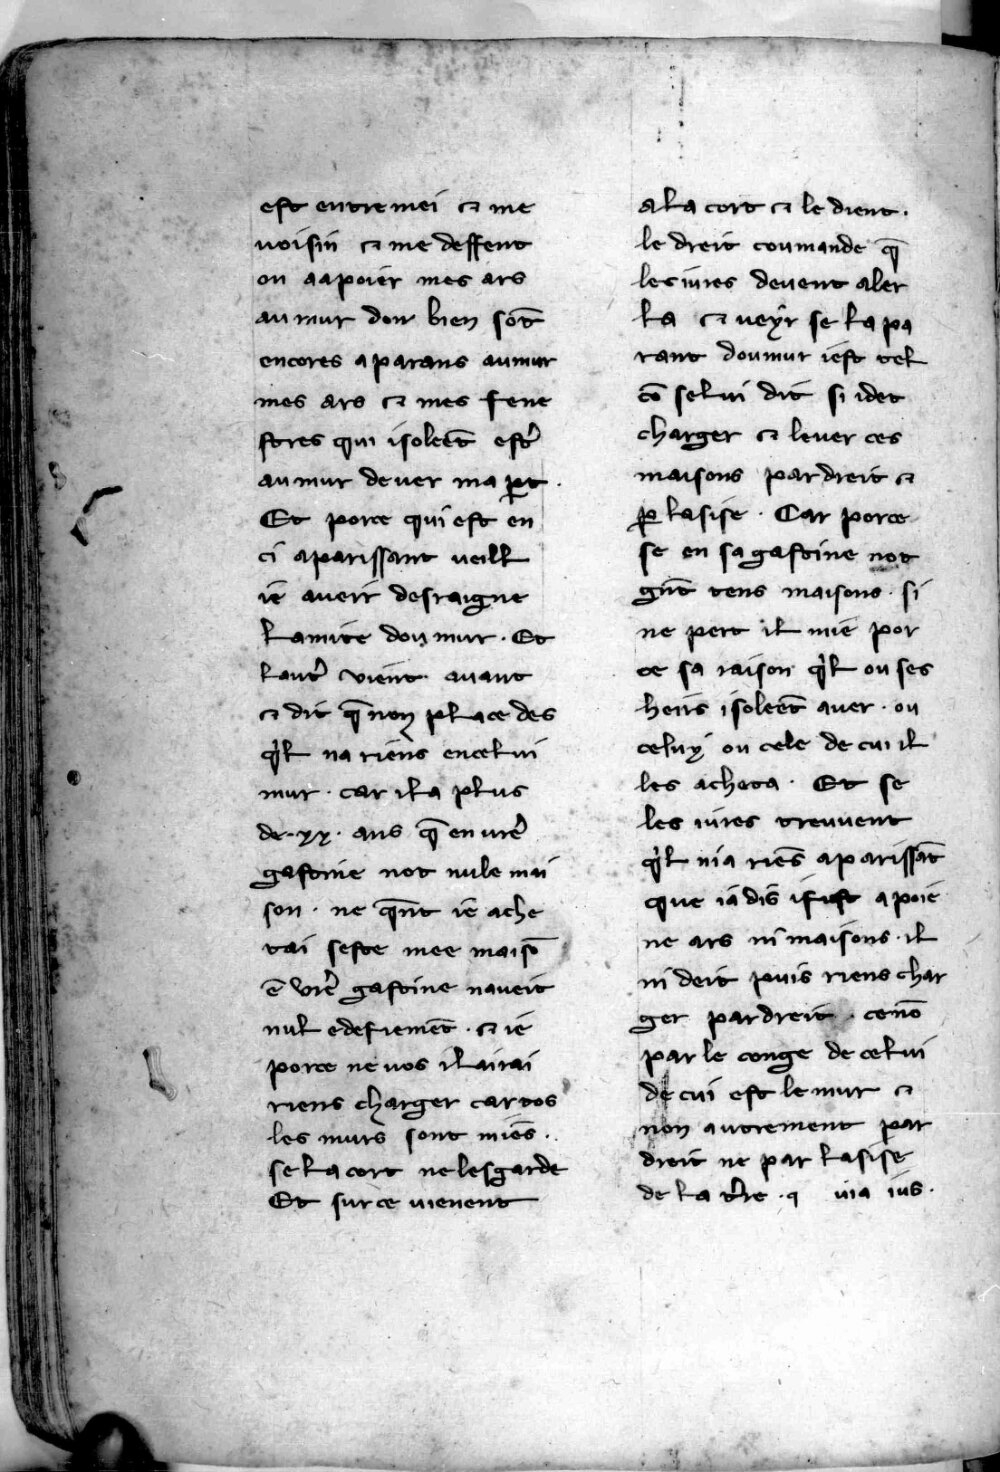 est entre mei ⁊ me
voisin ⁊ me deffent
ou aapoier mes ars
au mur don bien sōt
encores aparans au mur
mes ars ⁊ mes fene
stres qui isoleēt estˀ
au mur de ver ma ꝑt.
Et porce qui est en
ci aparissant veill
ie aveir desraigne
lamite dou mur. Et
lautˀ vient avant
⁊ dit q̄ non place des
qˡl na riens en celui
mur. car il a plus
de .xx. ans q̄ en vrēˀ
gastine not nule mai
son. ne q̄nt ie ache
tai seste mee maisō
ē vrēˀ gastine naveit
nul edefiemēt. ⁊ ie
porce ne vos ilairai
riens charger car tos
les murs sont miēs.
se la cort ne lesgarde
Et sur ce vienent
a la cort ⁊ le dient.
le dreit coumande q̄
les iures devent aler
la ⁊ veyr se la pa
rant dou mur iest tel
cō selui dit si i det
charger ⁊ lever ces
maisons par dreit ⁊
ꝑ lasise. Car porce
se en sa gastine not
gn̄t tens maisons. si
ne pert il mie por
ce sa raison qˡl ou ses
heirs i soleēt aver. ou
celuy ou cele de cui il
les acheta. Et se
les iures trevvent
qˡl nia riēs aparissāt
que iadis i fust apoie
ne ars ni maisons. il
ni deit puis riens char
ger par dreit. ce nō
par le conge de celui
de cui est le mur ⁊
non autrement par
dreit ne par lasise
de la tˀre. q via ius.